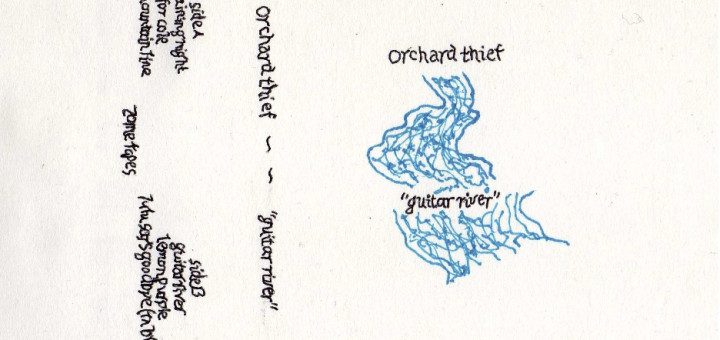 orchard thief
"guitar river"
orchard thief ~ ~ "guitar river"
side A
night
for cole
mountain line
zome tapes
side B
guitar river
lemon purple
says goodbye